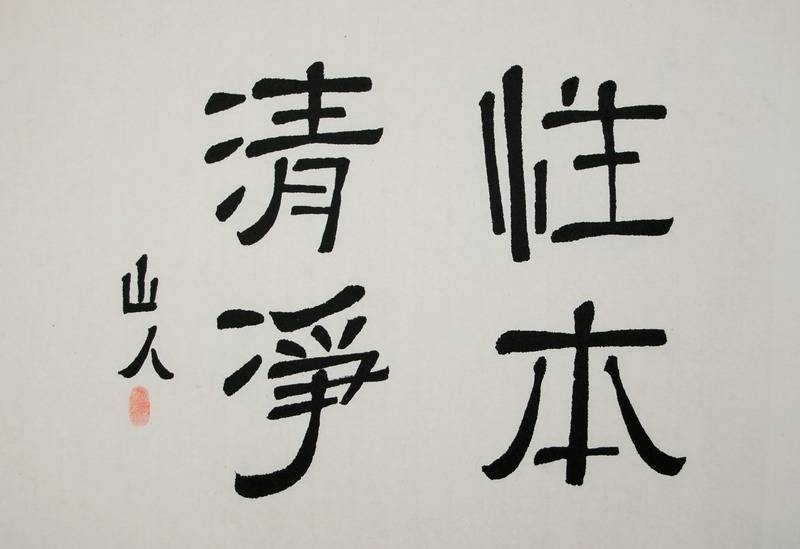 性本
清凈
山人